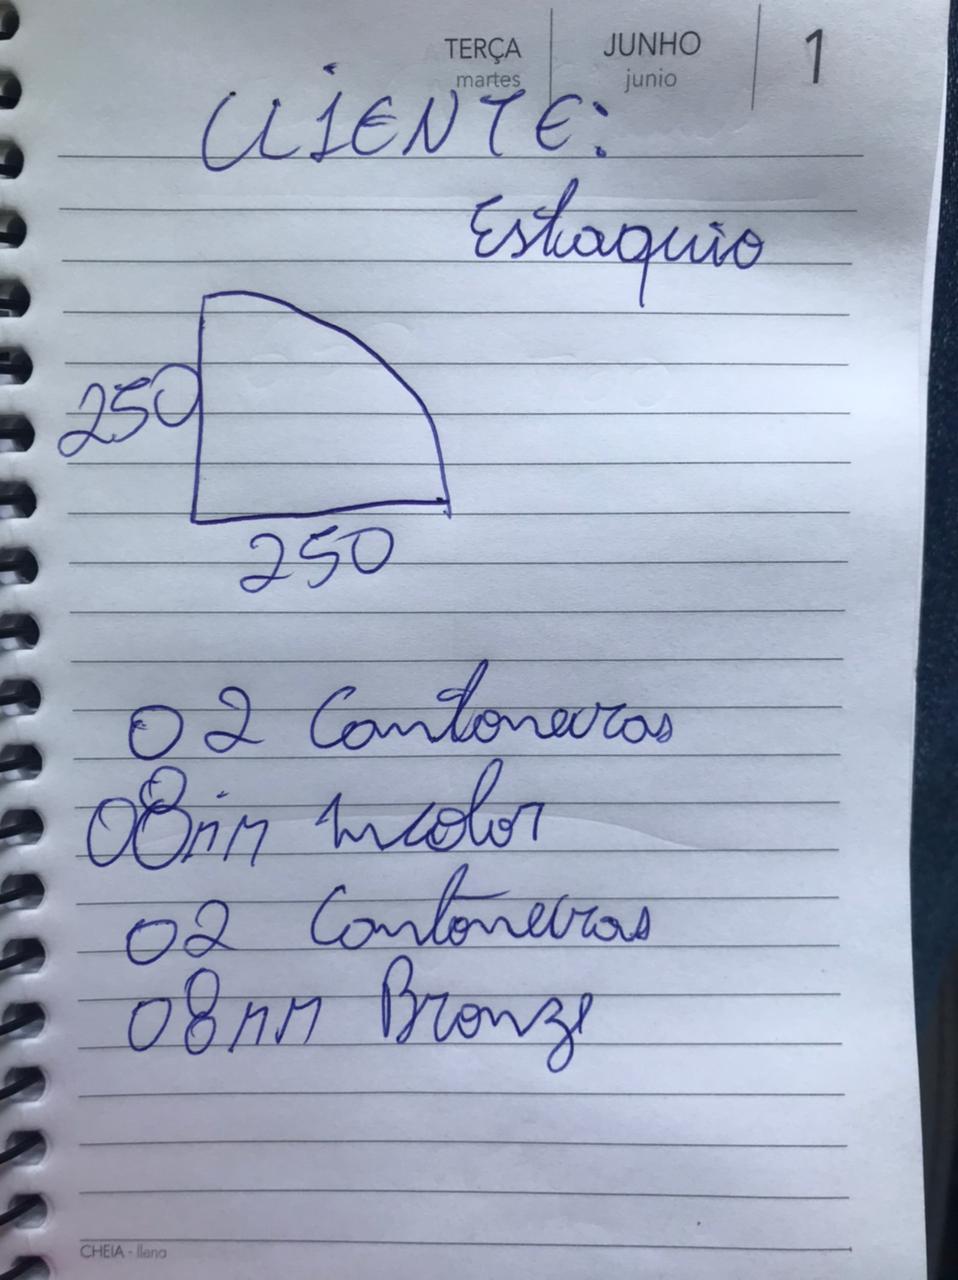 TERÇA
martes
JUNHO
junio
1
CLIENTE:
Estaquio
250
250
02 Cantoneiras
08mm Incolor
02 Cantoneiras
08mm Bronze
CHEIA - llena